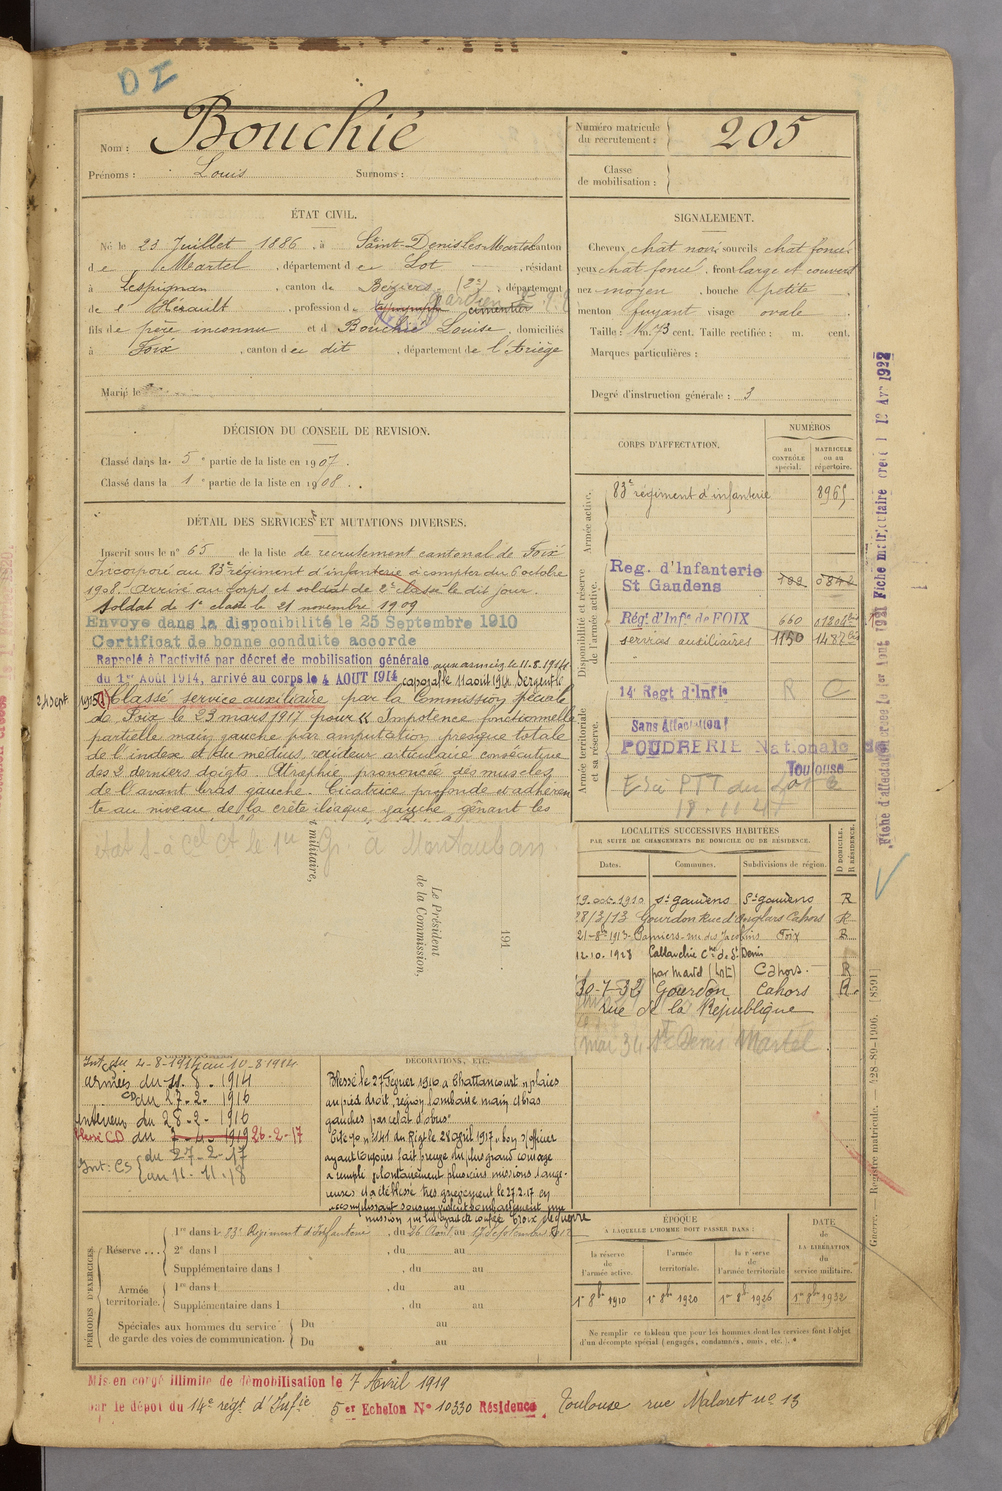 DI
Nom : Bouchié
Prénoms : Louis Surnoms :
Numéro matricule du recrutement : 205
Classe de mobilisation :
ÉTAT CIVIL.
Né le 23 Juillet 1886, à Saint-Denis les Martel canton
de Martel, département de Lot, résidant
à Lespignan, canton de Béziers (2e), département
de l'Hérault, profession de cimentier
fils de père inconnu et de Bouchié Louise, domiciliés
à Foix, canton de dit, département de l'Ariège
Marié le
SIGNALEMENT.
Cheveux chat noir sourcils chat foncé
yeux chat foncé, front large et couvert
nez moyen, bouche petite
menton fuyant visage ovale
Taille : 1 m. 73 cent. Taille rectifiée : m. cent.
Marques particulières :
Degré d'instruction générale : 3
DÉCISION DU CONSEIL DE REVISION.
Classé dans la 5e partie de la liste en 1907.
Classé dans la 1e partie de la liste en 1908.
CORPS D'AFFECTATION.
NUMÉROS
au CONTRÔLE spécial.
MATRICULE ou au répertoire.
Armée active.
83e régiment d'infanterie 8965
Disponibilité et réserve de l'armée active.
Reg. d'Infanterie
St Gaudens
Rég. d'Inf'ie de FOIX 660
services auxiliaires 1150
Armée territoriale et sa réserve.
14e Regt d'Infie R C
Sans Affectation
POUDRERIE Nationale de
Toulouse
PTT du Lot
18.11.4
DÉTAIL DES SERVICES ET MUTATIONS DIVERSES.
Inscrit sous le n° 65 de la liste de recrutement cantonal de Foix
Incorporé au 83e régiment d'infanterie à compter du 6 octobre
1908. Arrivé au corps, et soldat de 2e classe le dit jour.
Soldat de 1e classe le 21 novembre 1909
Envoye dans la disponibilité le 25 Septembre 1910
Certificat de bonne conduite accorde
Rappelé à l'activité par décret de mobilisation générale aux armées le 11.8.1914
du 1er Août 1914, arrivé au corps le 4 AOUT 1914 caporal le 11 août 1914. Sergent le
24 Sept 1915 Classé service auxiliaire par la Commission spéciale
de Foix le 23 mars 1917 pour « Impotence fonctionnelle
partielle main gauche par amputation presque totale
de l'index et du médius, raideur articulaire consécutive
des 2 derniers doigts. Atrophie prononcée des muscles
de l'avant bras gauche. Cicatrice profonde et adhéren
te au niveau de la crête iliaque gauche gênant les
à Montauban
militaire,
Le Président
de la Commission,
191
LOCALITÉS SUCCESSIVES HABITÉES
PAR SUITE DE CHANGEMENTS DE DOMICILE OU DE RÉSIDENCE.
D DOMICILE. R RÉSIDENCE.
Dates. Communes. Subdivisions de région.
19. oct. 1910 St Gaudens St Gaudens R
28/3/13 Gourdon Rue d' Cahors R
21-8bre 1913 Pamiers rue des Jacobins Foix R
12.10.1928 Cne de St Denis
par Martel (Lot) Cahors. R
30-7-32 Gourdon Cahors R
rue de la République
mai 34 St Denis Martel
Int. du 4-8-1914 au 10-8-1914
armées du 11. 8. 1914
CD du 27-2-1916
intérieur du 28-2-1916
CD du 26-2-17
Int: CS { du 27-2-17
au 11-11-18
DÉCORATIONS, ETC.
Blessé le 27 février 1916 à Chattancourt "plaies
au pied droit, région lombaire main et bras
gauches par éclat d'obus"
Cité 141 du Régt le 28 avril 1917 "bon s/officier
ayant toujours fait preuve du plus grand courage
a rempli volontairement plusieurs missions dange-
reuses. A été blessé très grièvement le 27.2.17 en
accomplissant sous un violent bombardement une
mission qui lui était confiée Croix de guerre
PÉRIODES D'EXERCICES.
Réserve . . . . { 1re dans l 83e Régiment d'Infanterie, du 26 Août au 17 Septembre 1912
2e dans l , du au
Supplémentaire dans l , du au
Armée territoriale. { 1re dans l , du au
Supplémentaire dans l , du au
Spéciales aux hommes du service de garde des voies de communication. { Du au
Du au
ÉPOQUE
À LAQUELLE L'HOMME DOIT PASSER DANS :
la réserve de l'armée active.
l'armée territoriale.
la réserve de l'armée territoriale
DATE de LA LIBÉRATION du service militaire.
1er 8bre 1910 1er 8bre 1920 1er 8bre 1926 1er 8bre 1932
Ne remplir ce tableau que pour les hommes dont les services font l'objet
d'un décompte spécial (engagés, condamnés, omis, etc.).
Mis en congé illimité de démobilisation le 7 Avril 1919
par le dépôt du 14e régt d'Infie 5er Echelon N° 10330 Résidence Toulouse rue Malaret n° 13
Guerre. — Registre matricule. — 428-89-1906. [8591]